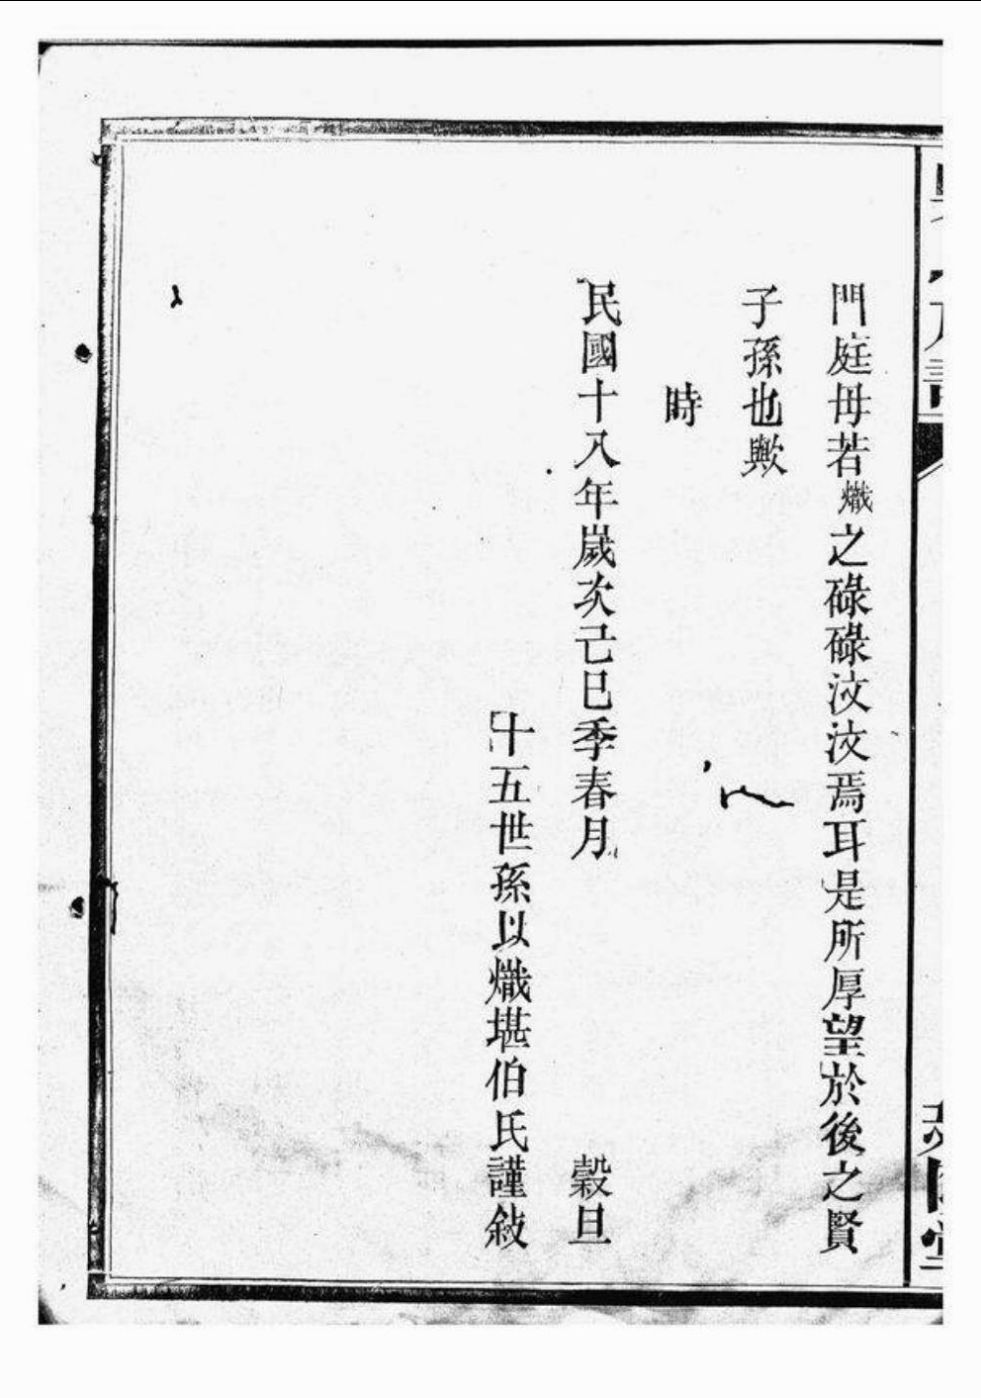 門庭毋若熾之碌碌汶汶焉耳是所厚望於後之賢
子孫也歟
時
民國十八年歲次己巳季春月 穀旦
十五世孫以熾堪伯氏謹敍